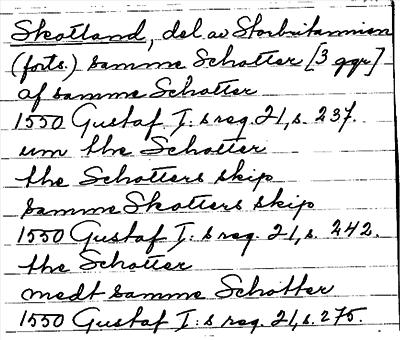 Skotland, del av Storbritannien
(forts.) samme Schotter [3 ggr]
af samme Schotter
1550 Gustaf I:s reg. 21, s. 237.
um the Schotter
the Schotters skip
samme Skotters skip
1550 Gustaf I:s reg. 21, s. 242.
the Schotter
medt samme Schotter
1550 Gustaf I:s reg. 21, s. 275.